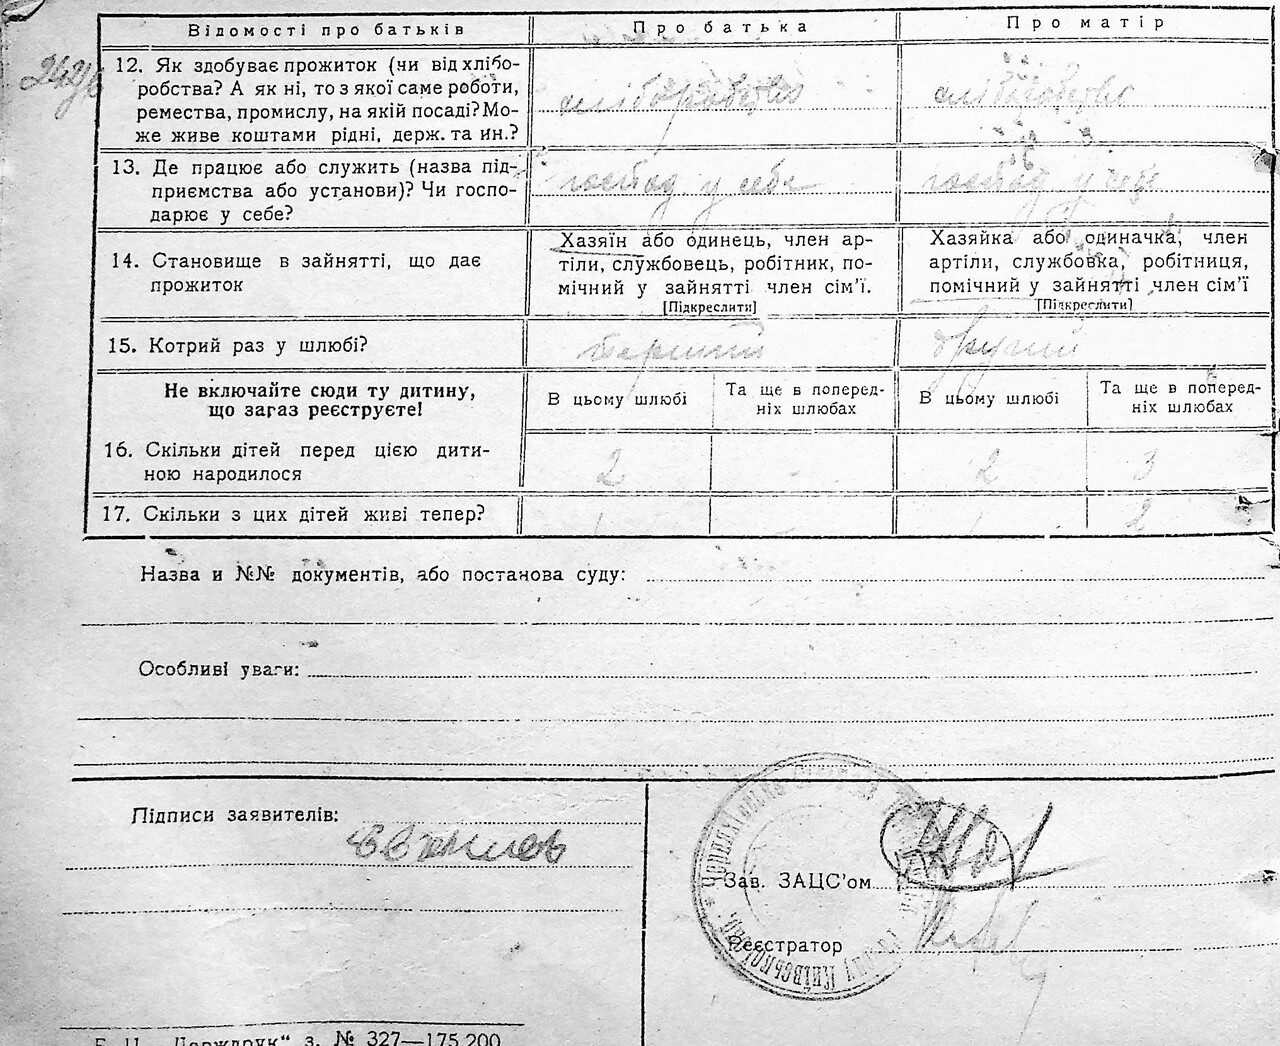 Відомості про батьків
Про батька
Про матір
12. Як здобуває прожиток (чи від хлібо-
робства? А як ні, то з якої саме роботи,
ремества, промислу, на якій посаді? Мо-
же живе коштами рідні, держ. та ин.?
хліборобство
хліборобство
13. Де працює або служить (назва під-
приємства або установи)? Чи госпо-
дарює у себе?
господ у себе
господ у себе
14. Становище в зайнятті, що дає
прожиток
Хазяїн або одинець, член ар-
тіли, службовець, робітник, по-
мічний у зайнятті член сім’ї.
[Підкреслити]
Хазяйка або одиначка, член
артіли, службовка, робітниця,
помічний у зайнятті член сім’ї
[Підкреслити]
15. Котрий раз у шлюбі?
перший
другий
Не включайте сюди ту дитину,
що загаз реєструєте!
В цьому шлюбі
Та ще в поперед-
ніх шлюбах
В цьому шлюбі
Та ще в поперед-
ніх шлюбах
16. Скільки дітей перед цією дити-
ною народилося
2
2
3
17. Скільки з цих дітей живі тепер?
1
1
2
Назва и №№ документів, або постанова суду:
Особливі уваги:
Підписи заявителів:
Зав. ЗАЦС’ом
Реєстратор
"Держдрук“ з. № 327—175.200